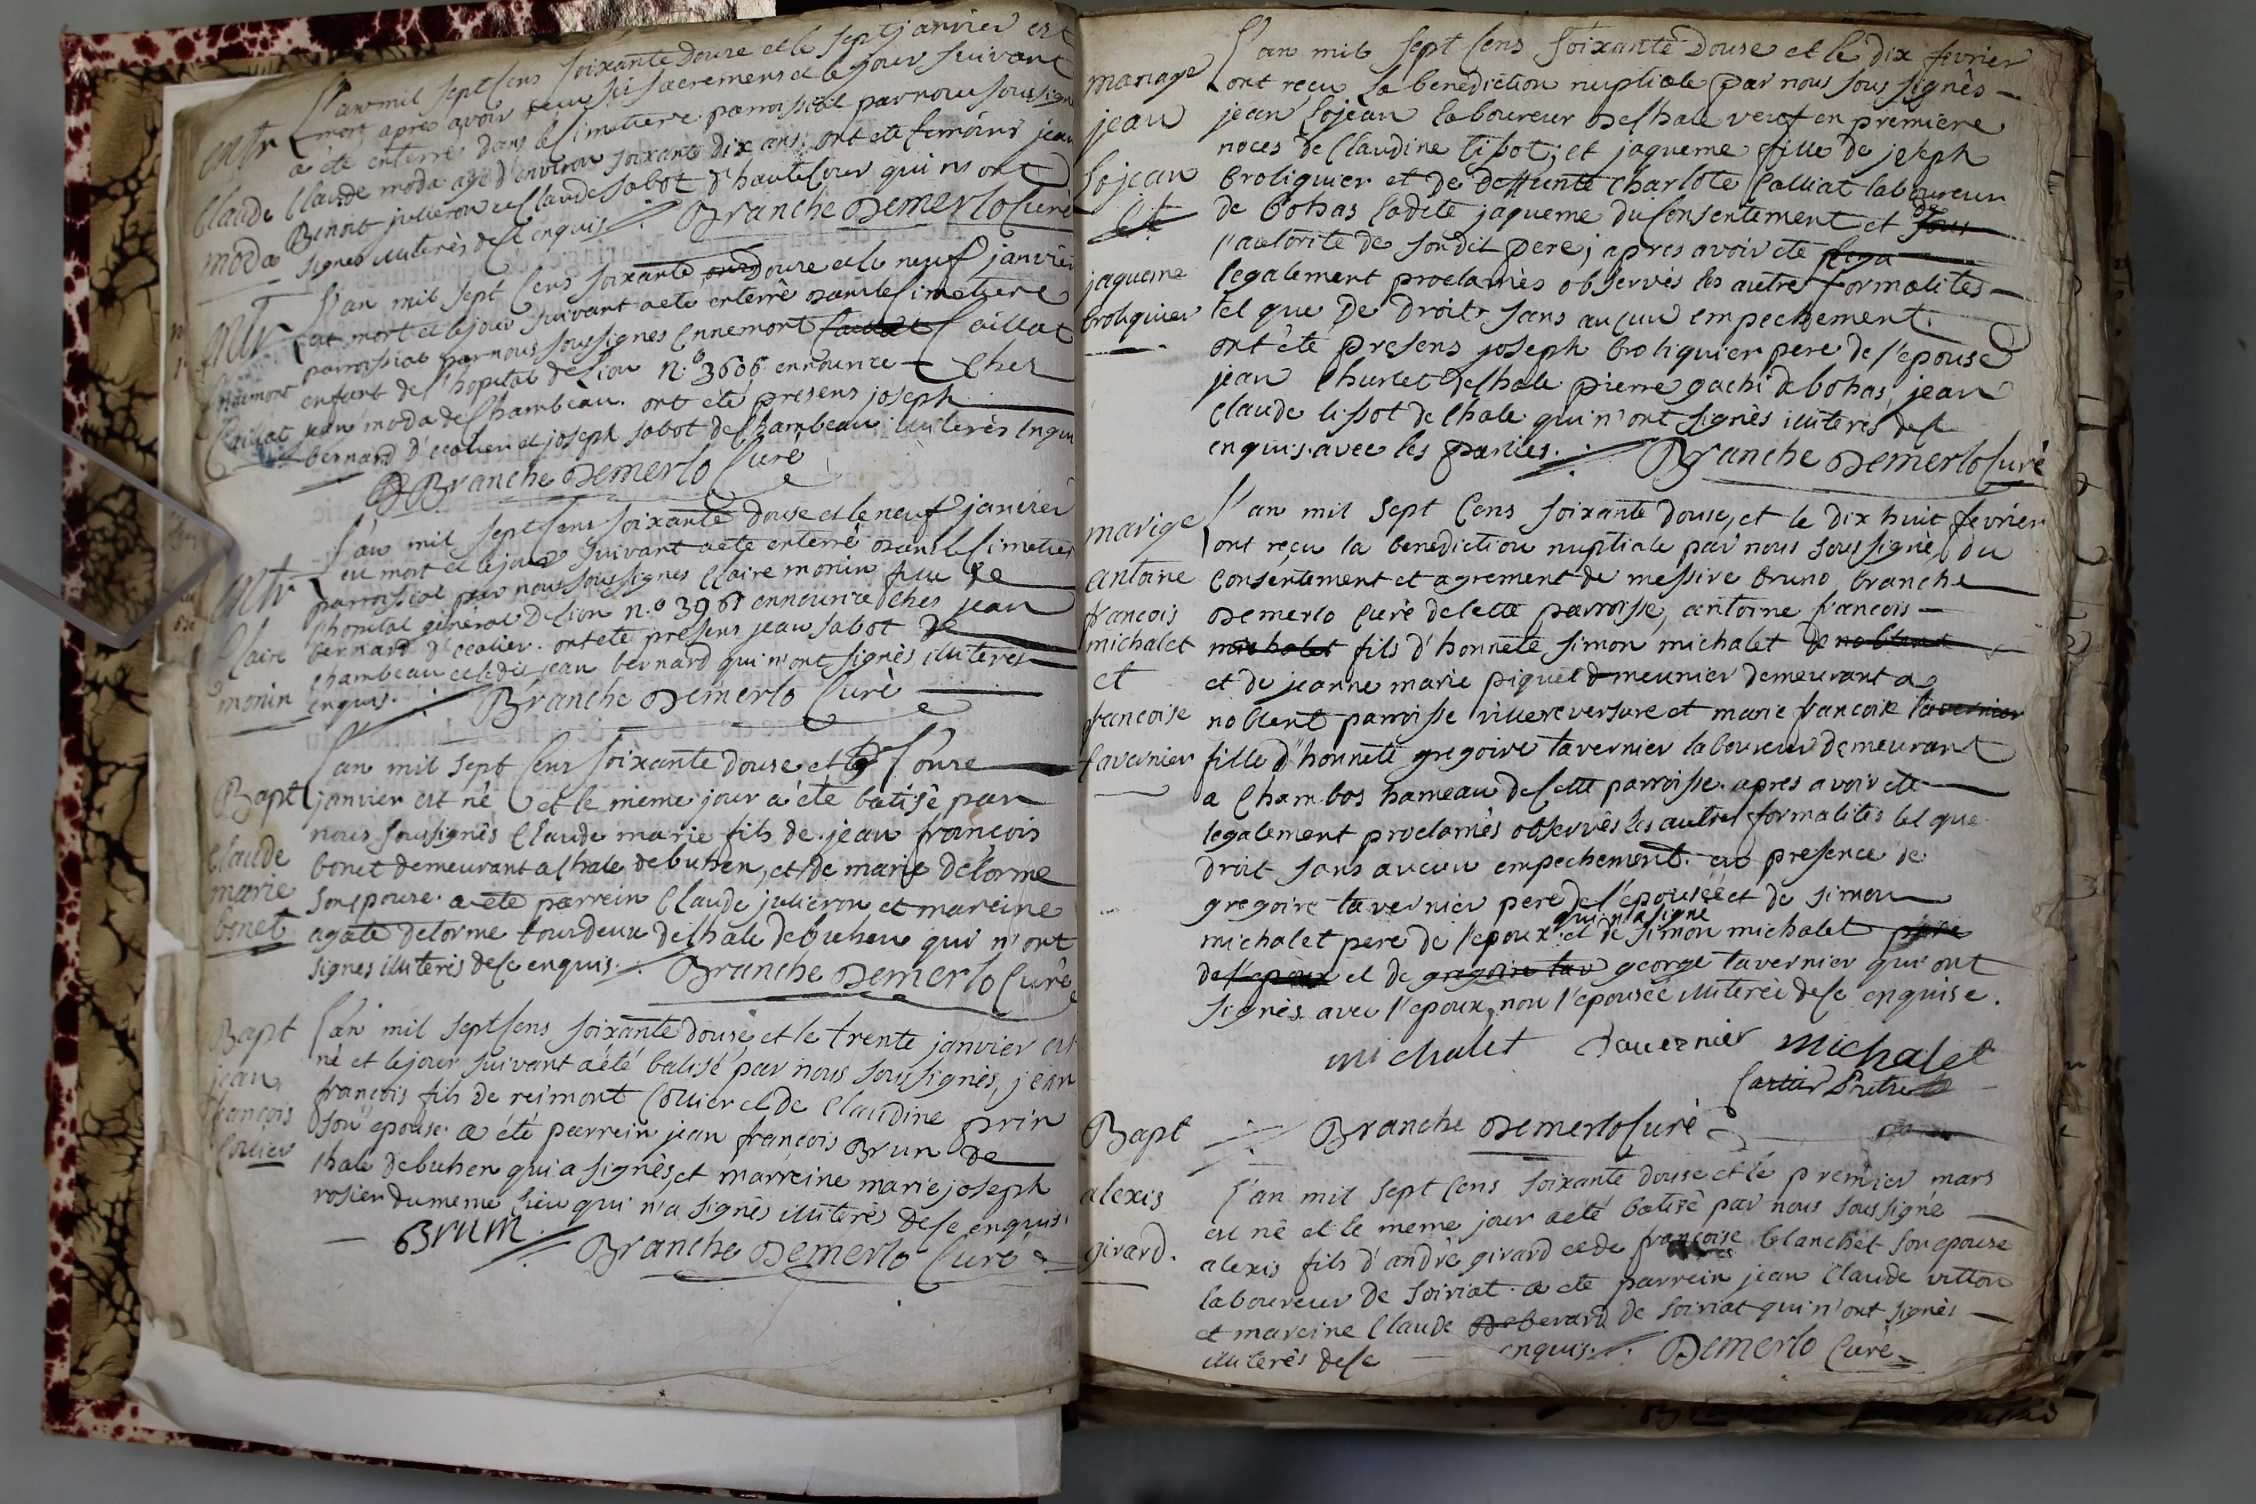 L'an mil sept Cens soixante douse et le sept janvier est
mort apres avoir reçu ses sacremens et le jour suivant
a été enterré dans le simetiere parroissial par nous soussignés
Claude moda agé d'environ soixante dix ans. ont été temoins jean
Benoit julieron et Claude sabot d'hautecour qui n'ont
signés illiterés de ce enquis. Branche Demerlo Curé
entr
Claude
moda
L'an mil sept Cens soixante douse et le neuf janvier
est mort et le jour suivant a été enterré dans le simetiere
parroissial par nous soussignes Ennemont Caillat
enfant de l'hopital de Lion n.º 3606 en nourice Chez
jean moda de Chambeau. ont été presens joseph
bernard d'ecolieu et joseph sabot de Chambeau illiterés enquis
Branche Demerlo Curé
entr
Ennemont
Caillat
L'an mil sept Cens soixante douse et le neuf janvier
est mort et le jour suivant a été enterré dans le simetiere
parroissial par nous soussignes Claire monin fille de
l'hopital général de Lion n.º 3961 en nourice chez jean
bernard d'ecolier. ont été presens jean sabot de
Chambeau et le dit jean bernard qui n'ont signés illiteres
enquis. Branche Demerlo Curé
entr
Claire
monin
L'an mil sept Cens soixante douse et le Conse
janvier est né et le meme jour a été batisé par
nous soussignés Claude marie fils de jean françois
bonet demeurant a Chale de buhen, et de marie delorme
son epouse. a été parrein Claude julieron et mareine
agate delorme tous deux de Chale de buhen qui n'ont
signes illiterés de ce enquis. Branche Demerlo Curé
Bapt
Claude
marie
bonet
L'an mil sept Cens soixante douse, et le trente janvier est
né et le jour suivant a été batisé par nous soussignés, jean
françois fils de reimont Collier et de Claudine prin
son epouse. a été parrein jean françois Brun de
Chale de buhen qui a signés et marreine marie joseph
rosier du meme lieu qui n'a signés illiterés de ce enquis.
Brun. Branche Demerlo Curé
Bapt
jean
françois
Collier
L'an mil sept Cens soixante douse et le dix fevrier
ont reçu la benediction nuptiale par nous sous signés
jean Lojean laboureur de Chale veuf en premiere
noces de Claudine tissot; et jaqueme fille de joseph
broliquier et de deffunte Charlote Calliat laboureur
de bohas ladite jaqueme du Consentement et de
l'autorité de son dit pere; apres avoir ete
legalement proclamés observés les autres formalités
tel que De Droit sans aucun empechement.
ont été presens joseph broliquier pere de l'epouse
jean Churlet de Chale pierre gachi de bohas, jean
Claude tissot de Chale qui n'ont signés illiterés de ce
enquis avec les parties. Branche Demerlo Curé
mariage
jean
Lojean
et
jaqueme
broliquier
L'an mil sept Cens soixante douse, et le dix huit fevrier
ont reçu la benediction nuptiale par nous sous signé, du
Consentement et agrement de messire bruno branche
Demerlo Curé de cette parroisse, antoine francois
michalet fils d'honnête simon michalet de noblent
et de jeanne marie piquet meunier demeurant a
noblent parroisse villereversure et marie francoise tavernier
fille d'honnête gregoire tavernier laboureur demeurant
a Chambos hameau de cette parroisse. apres avoir eté
legalement proclamés observés les autres formalités tel que
droit sans aucun empechement. en presence de
gregoire tavernier pere de l'épousée et de simon
qui n'a signé
michalet pere de l'epoux. et de simon michalet pere
de l'epoux et de gregoire tav george tavernier qui ont
signés avec l'epoux, non l'epousée illiterée de ce enquise.
michalet Tavernier Michalet
Cartier Prêtre
Branche Demerlo Curé
marige
antoine
francois
michalet
et
francoise
tavernier
L'an mil sept Cens soixante douse et le premier mars
est né et le meme jour a été batisé par nous soussigné
alexis fils d'andré girard et de françoise blanchet son epouse
laboureur de soiriat. a eté parrein jean Claude vitton
et mareine Claude beverard de soiriat qui n'ont signés
illiterés de ce enquis. Demerlo Curé
Bapt
alexis
girard.